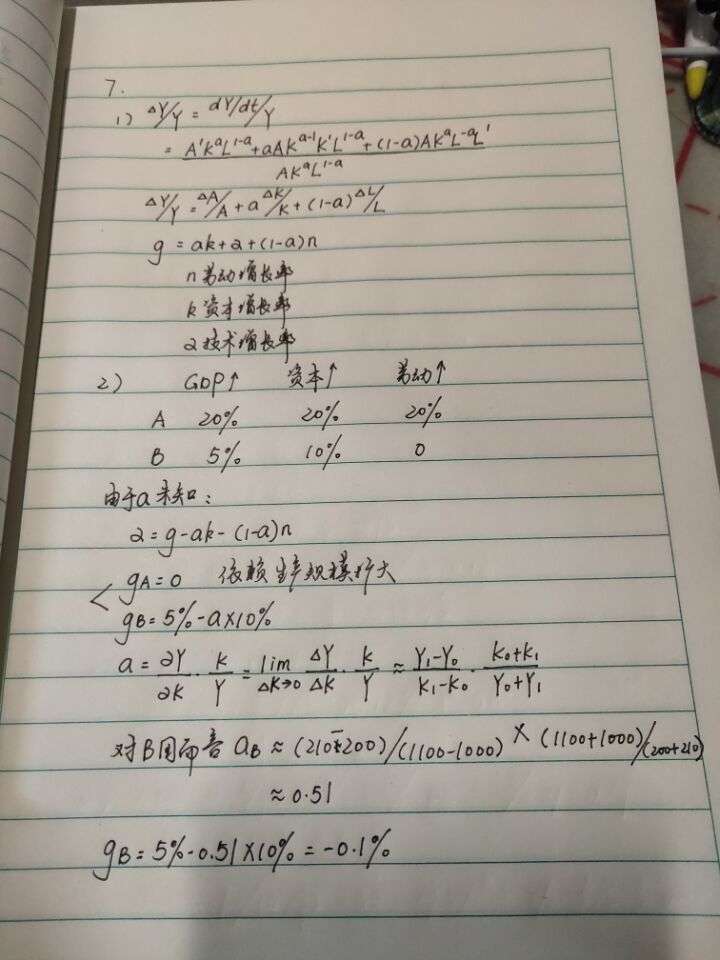 7.
1) ΔY/Y = dY/dt/Y
= A'K^aL^1-a + aAK^a-1K'L^1-a + (1-a)AK^aL^-aL' / AK^aL^1-a
ΔY/Y = ΔA/A + a ΔK/K + (1-a) ΔL/L
g = ak + a + (1-a)n
n 劳动增长率
k 资本增长率
a 技术增长率
2) GDP↑ 资本↑ 劳动↑
A 20% 20% 20%
B 5% 10% 0
由于a未知:
a = g - ak - (1-a)n
gA = 0 依赖生产规模扩大
gB = 5% - a×10%
a = ∂Y/∂K · K/Y = lim ΔK→0 ΔY/ΔK · K/Y ≈ Y₁-Y₀/K₁-K₀ · K₀+K₁/Y₀+Y₁
对B国而言 aB ≈ (210-200)/(1100-1000) × (1100+1000)/(200+210)
≈ 0.51
gB = 5% - 0.51×10% = -0.1%